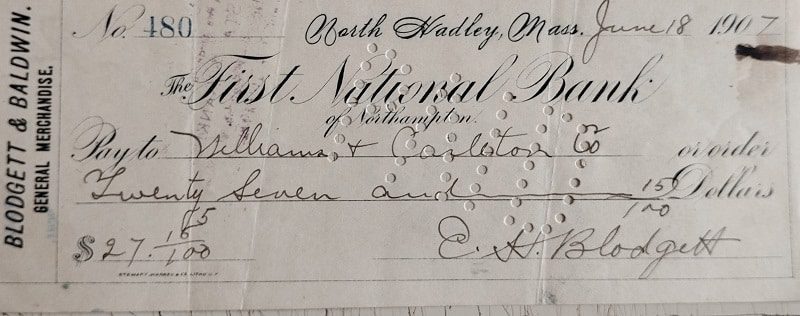 BLODGETT & BALDWIN.
GENERAL MERCHANDISE.
No. 480 North Hadley, Mass. June 18 1907
The First National Bank
of Northampton.
Pay to Williams & Carleton Co or order
Twenty Seven and 15/100 Dollars
$27.15/100
E. H. Blodgett